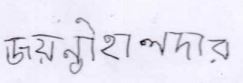 জয়ন্তী হালদার